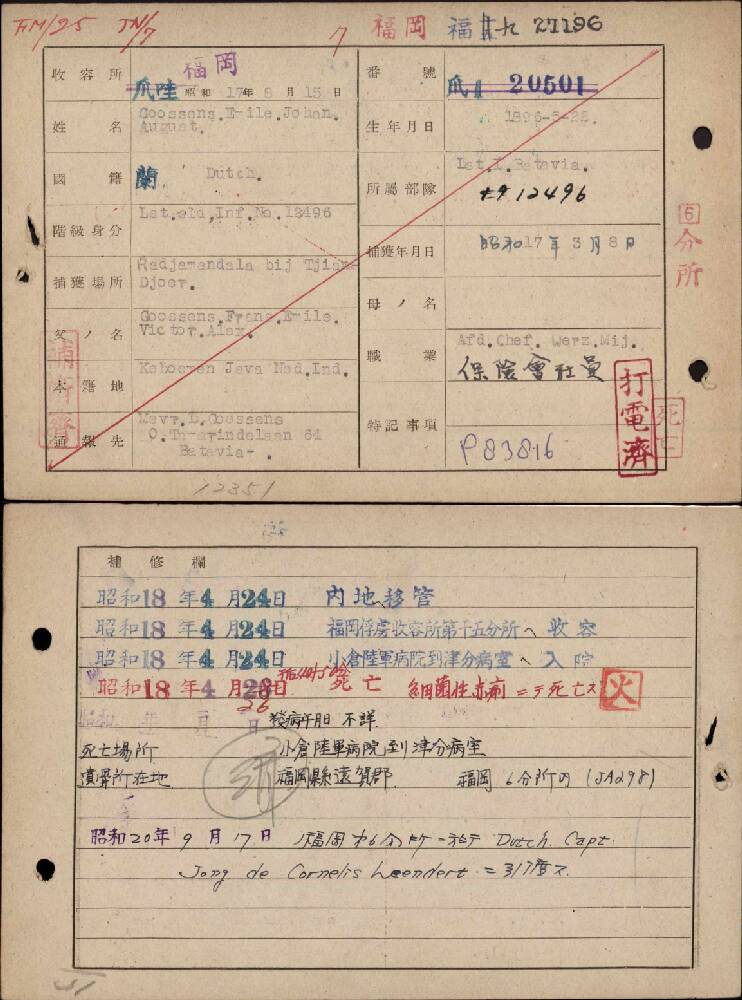 FM/25 JN/7 7 福岡 福 27196
收容所 福岡 爪哇 昭和17年8月15日
番號 爪 20501
姓名 Goossens, Emile, Johan, August.
生年月日 1896-5-28.
國籍 蘭 Dutch.
所屬部隊 Lst.I.Batavia. 12496
階級身分 Lst.sld,Inf.No.12496
捕獲年月日 昭和17年3月8日
捕獲場所 Radjamandala bij Tjian Djoer.
母ノ名
父ノ名 Goossens, Frans, Emile, Victor, Alex.
職業 Afd.Chef. Werz.Mij. 保險會社員
本籍地 Keboemen Java Ned,Ind.
通報先 Mevr.D.Goossens
O.Tamarindelaan 64
Batavia-.
特記事項 P83816
6分所
打電濟
死亡
補修濟
12351
補修欄
昭和18年4月24日 内地へ移管
昭和18年4月24日 福岡俘虜收容所第十五分所へ收容
昭和18年4月24日 小倉陸軍病院到津分病室へ入院
昭和18年4月26日 死亡 細菌性赤痢ニテ死亡ス 火
昭和 年 月 日 發病年月日 不詳
死亡場所 小倉陸軍病院到津分病室
遺骨所在地 福岡縣遠賀郡 福岡6分所内 (JA298)
昭和20年9月17日 福岡 6分所ニ於テ Dutch. Capt.
Jong de Cornelis Leendert ニ引渡ス